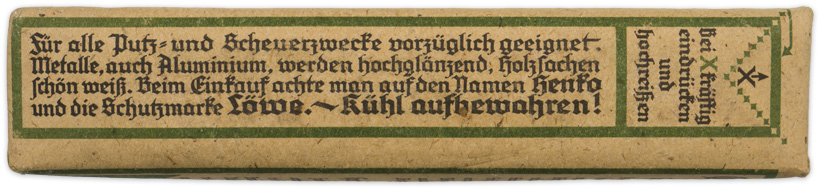 Für alle Putz- und Scheuerzwecke vorzüglich geeignet.
Metalle, auch Aluminium, werden hochglänzend, Holzsachen
schön weiß. Beim Einkauf achte man auf den Namen Henko
und die Schutzmarke Löwe. ~ Kühl aufbewahren!
Bei X kräftig
eindrücken
und
hochreißen
X